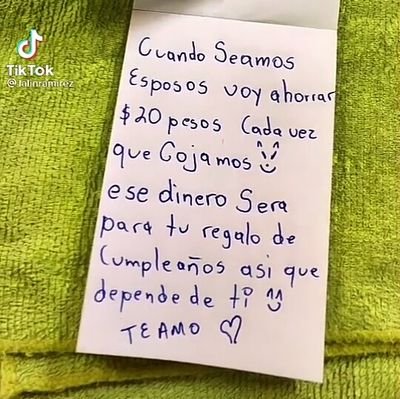 TikTok
@lalinramirez
Cuando Seamos
Esposos voy ahorrar
$20 pesos Cada vez
que Cojamos
ese dinero Sera
para tu regalo de
Cumpleaños asi que
depende de ti
TE AMO